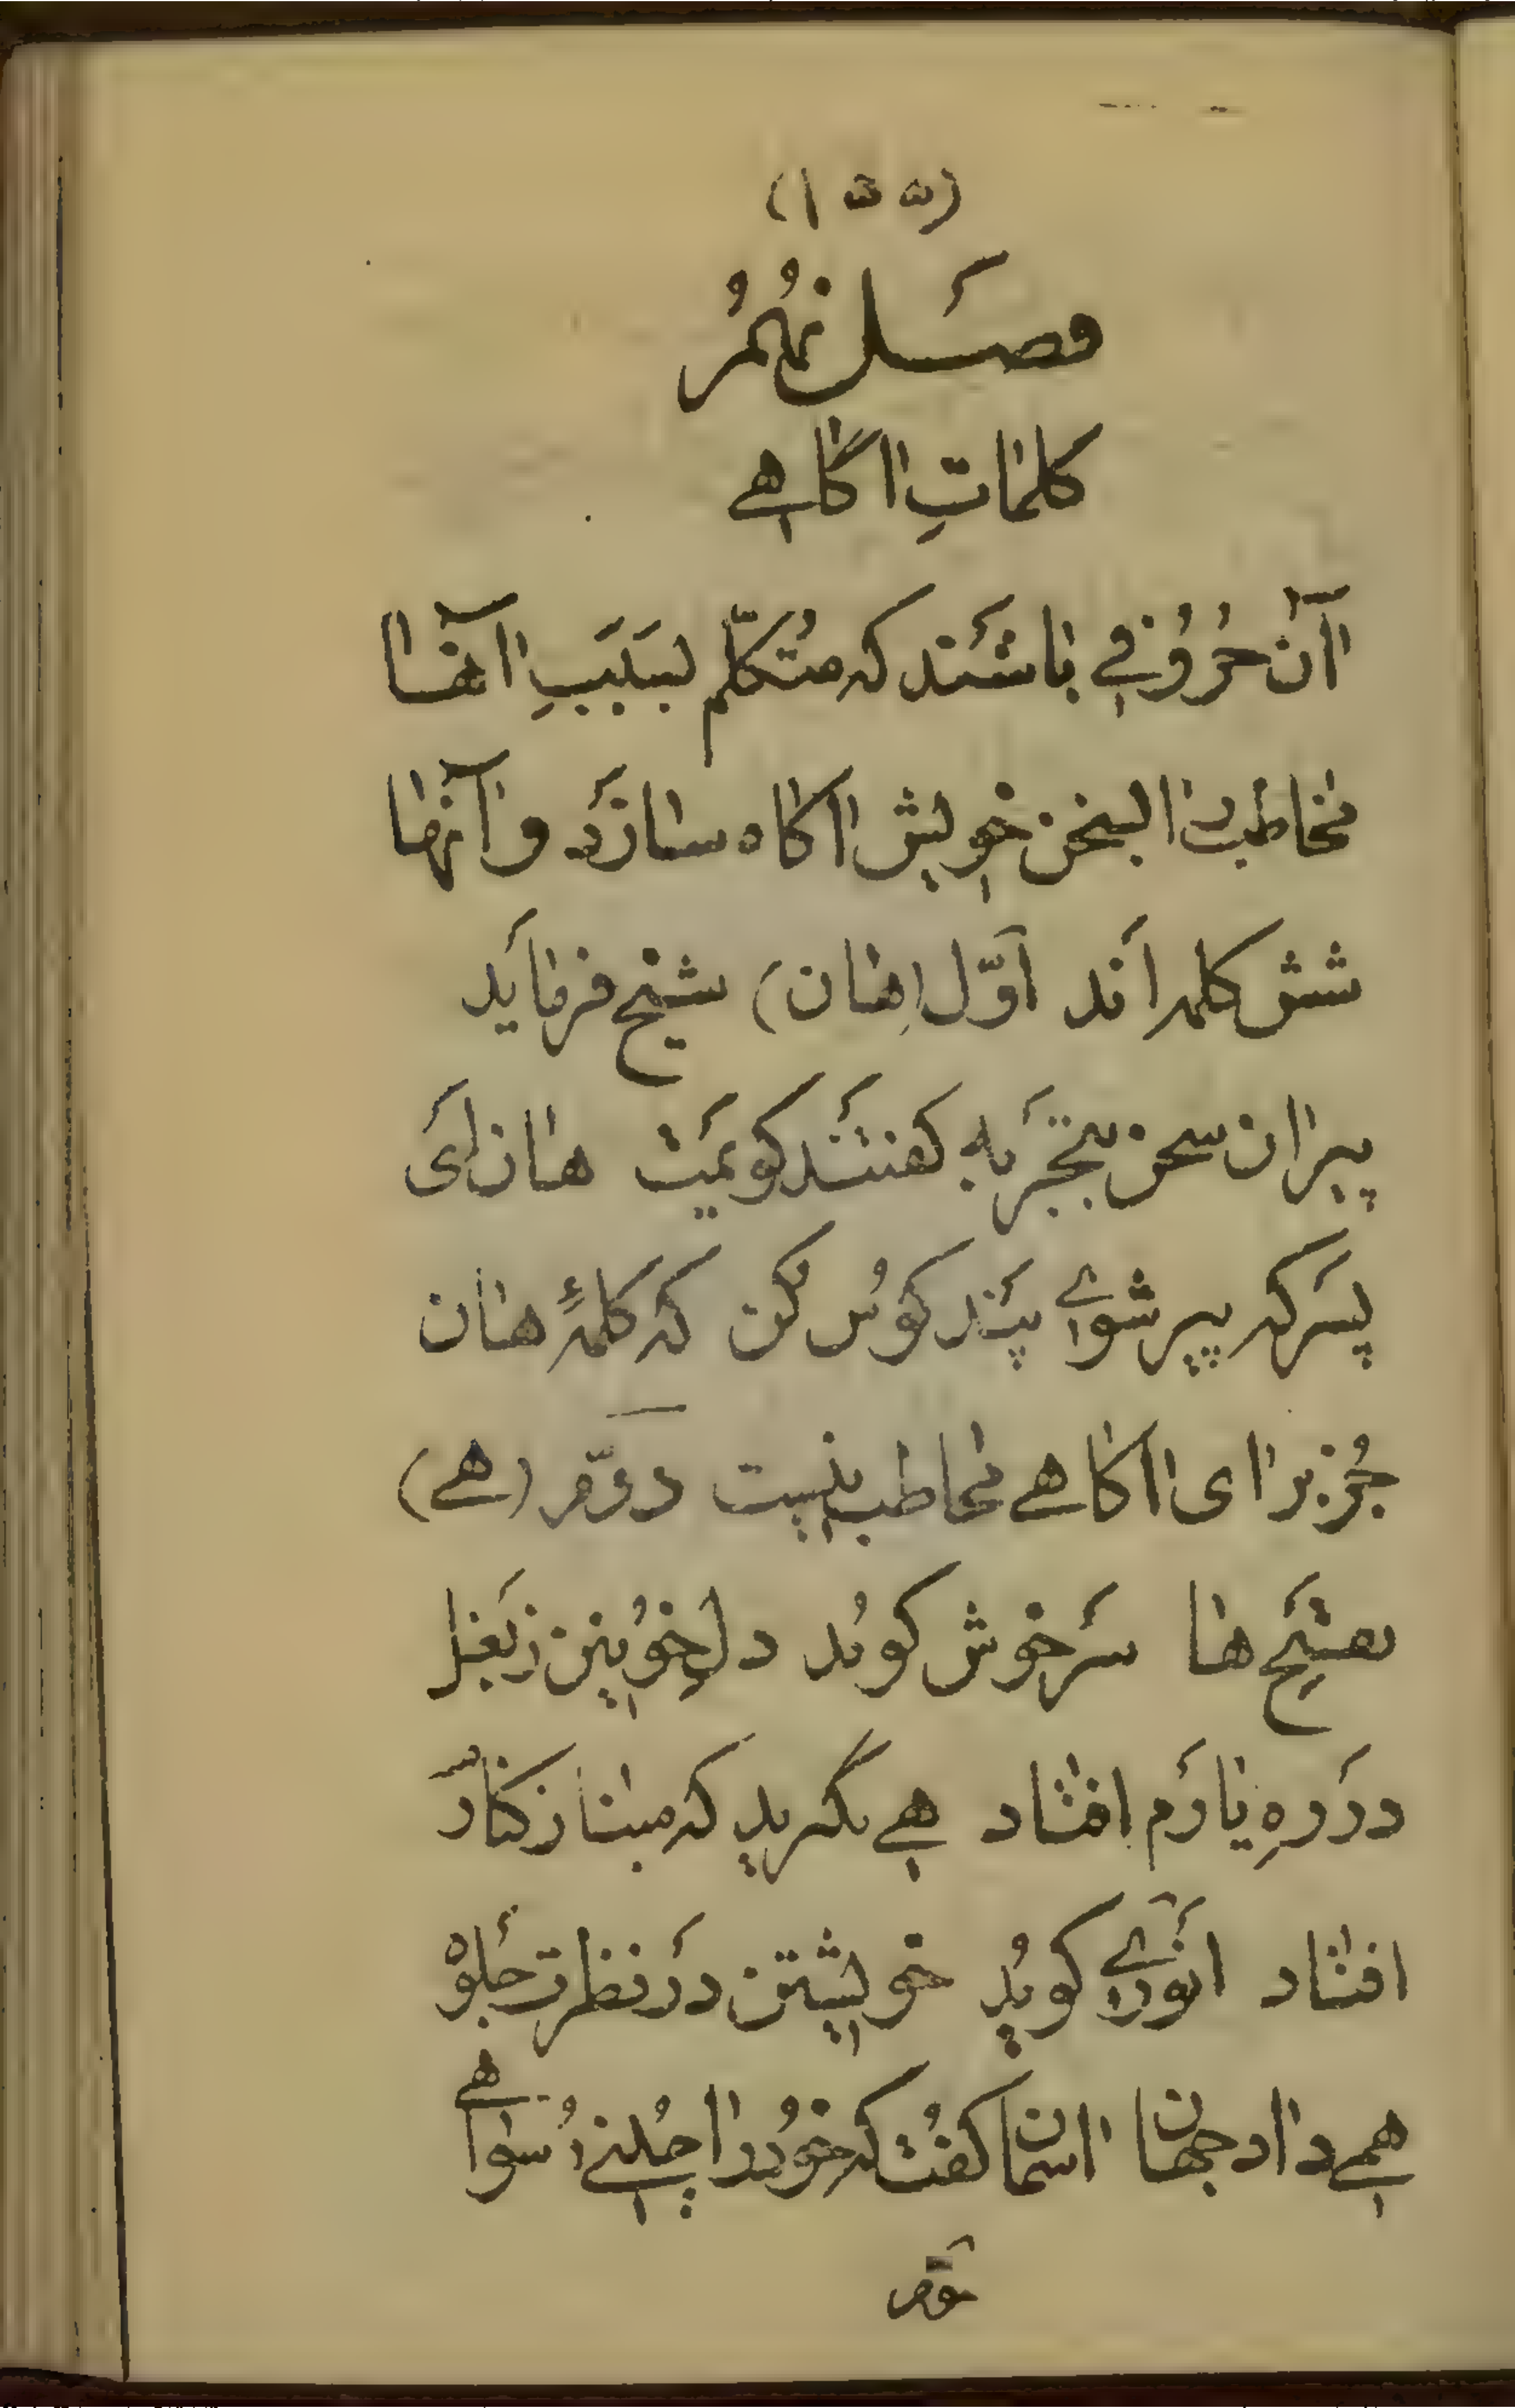 (۱۵۵)
فصَل نُهُمُ
کلماتِ اگاهے
اآن حُرُوفے باشَند که مُتکلّم بسَبَبِ اآنها
مخاطب را بسخن خویش اگاه سازَد و آنها
شش کلمه اَند اَوّل (هان) شیخ فرمایَد
پیران سخن بتجرَبه کفتنَد کویمَت هان اَی
پسَر که پیر شوے پَند کوُش کن که کلمهٔ هان
جُز برای اگاهے مخاطب نیست دوّم (هے)
بفتَح ها سَرخوش کوید دلِ خوُنین ز بغل
دَر رهِ یارَم افتاد هے بگیرید که مینا ز کنارَم
افتاد انوَرے کویُد خویشتن دَر نظرت جَلوه
همے داد جهان اسمان کفُت که خوُد را چکنے رُسوا هے
سوّم